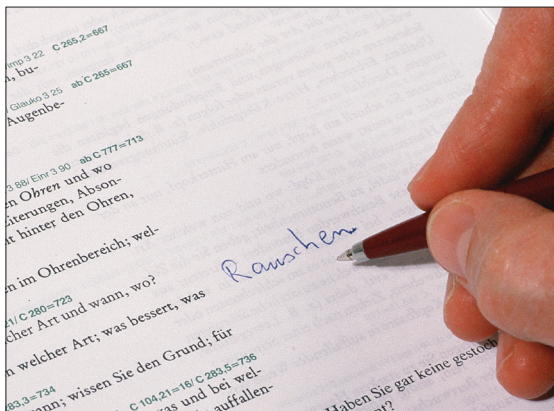 /Imp 3 22 C 265,2=667
n, bu-
/ Glauko 3 25 ab C 265=667
Augenbe-
3 88/ Einr 3 90 ab C 777=713
en Ohren und wo
Eiterungen, Abson-
t hinter den Ohren,
en im Ohrenbereich; wel-
21/ C 280=723
cher Art und wann, wo?
n welcher Art; was bessert, was
Rauschen
ann; wissen Sie den Grund; für
83,3=734
C 104,21=16/ C 283,5=736
was und bei wel-
auffallen-
Haben Sie gar keine gestoch